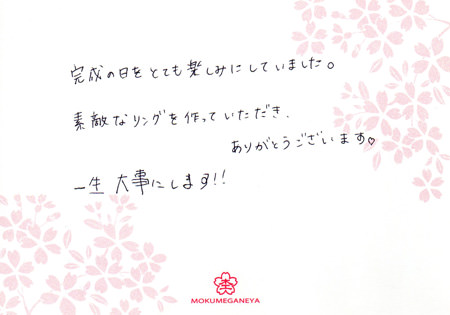 完成の日をとても楽しみにしていました。
素敵なリングを作っていただき、
ありがとうございます♡
一生大事にします!!
MOKUMEGANEYA